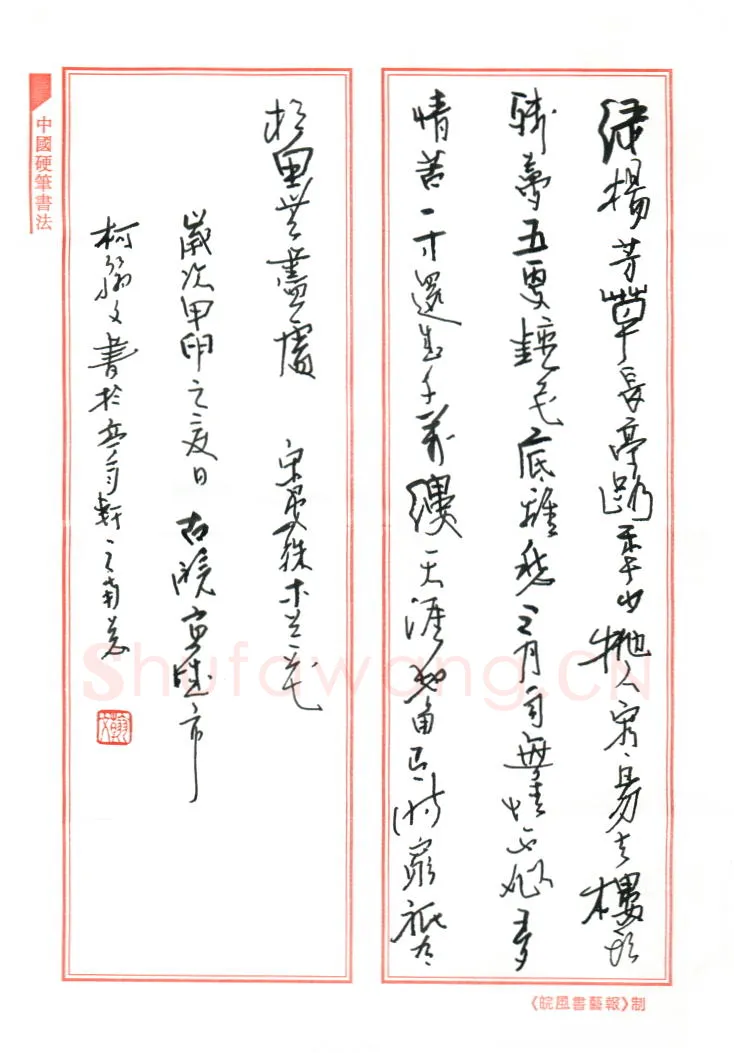 绿楊芳草長亭路年少抛人容易去樓頭
残夢五更鐘花底離愁三月雨無情不似多
情苦一寸還成千萬縷天涯地角有時窮祗有
相思無盡處 宋晏殊木兰花
歲次甲卯之夏日 古皖宣城市
柯翰文書於軒之南窗
中國硬筆書法
shufawang.CN
《皖風書藝報》制